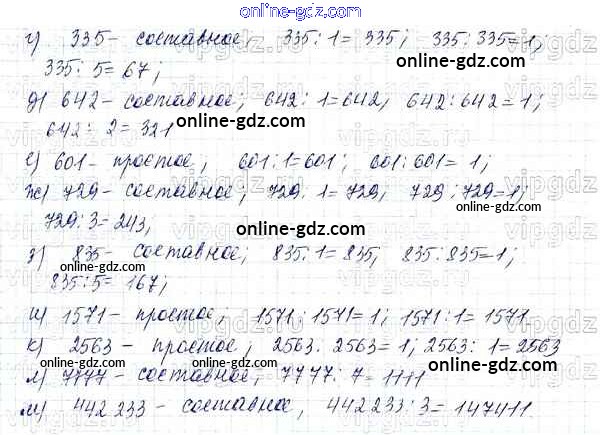 online-gdz.com
г) 335 - составное, 335 : 1 = 335; 335 : 335 = 1;
335 : 5 = 67;
online-gdz.com
д) 642 - составное; 642 : 1 = 642, 642 : 642 = 1;
642 : 2 = 321
online-gdz.com
е) 601 - простое, 601 : 1 = 601; 601 : 601 = 1;
ж) 729 - составное, 729 : 1 = 729, 729 : 729 = 1;
online-gdz.com
729 : 3 = 243;
online-gdz.com
з) 835 - составное; 835 : 1 = 835, 835 : 835 = 1;
online-gdz.com online-gdz.com
835 : 5 = 167;
и) 1571 - простое; 1571 : 1571 = 1; 1571 : 1 = 1571
online-gdz.com
к) 2563 - простое, 2563 : 2563 = 1; 2563 : 1 = 2563
online-gdz.com online-gdz.com
л) 7777 - составное, 7777 : 7 = 1111
online-gdz.com
м) 442 233 - составное, 442 233 : 3 = 147411.
online-gdz.com